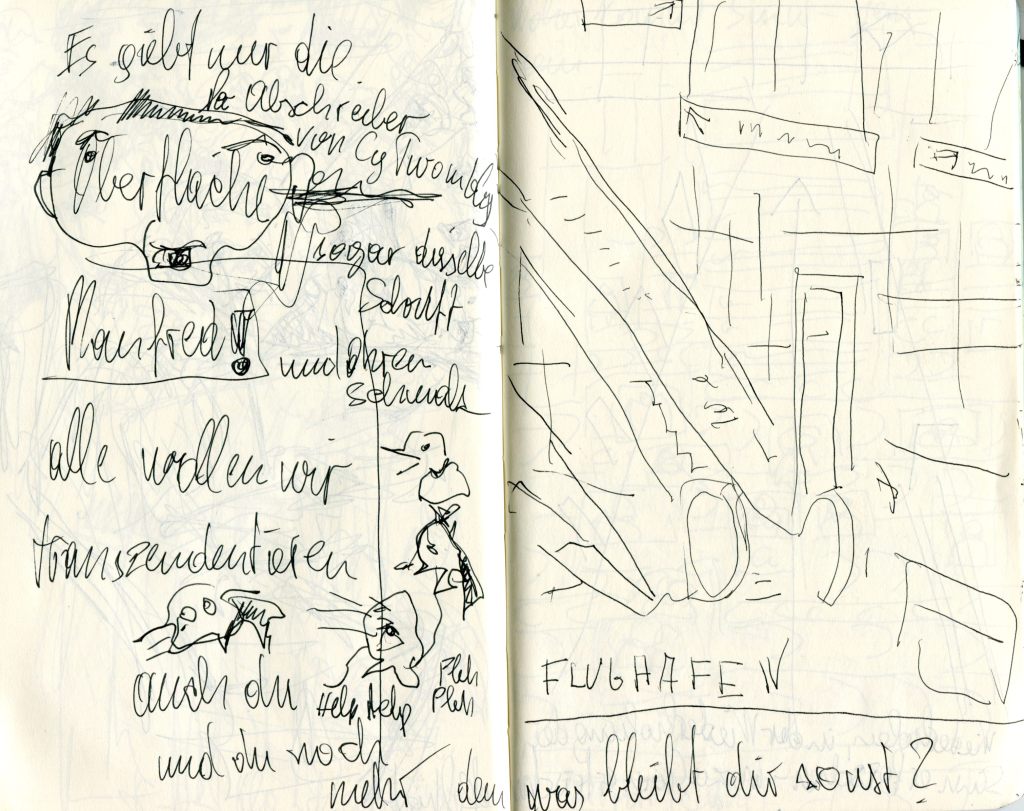 Es giebt nur die
Oberfläche
Abschreiber
von Cy Twombly
sogar dieselbe
Schrift
und Ohren
schmalz
Manfred!
alle wollen wir
transzendentieren
auch du
Help Help
Pleh
Pleh
und du noch
mehr denn was bleibt dir sonst?
FLUGHAFEN